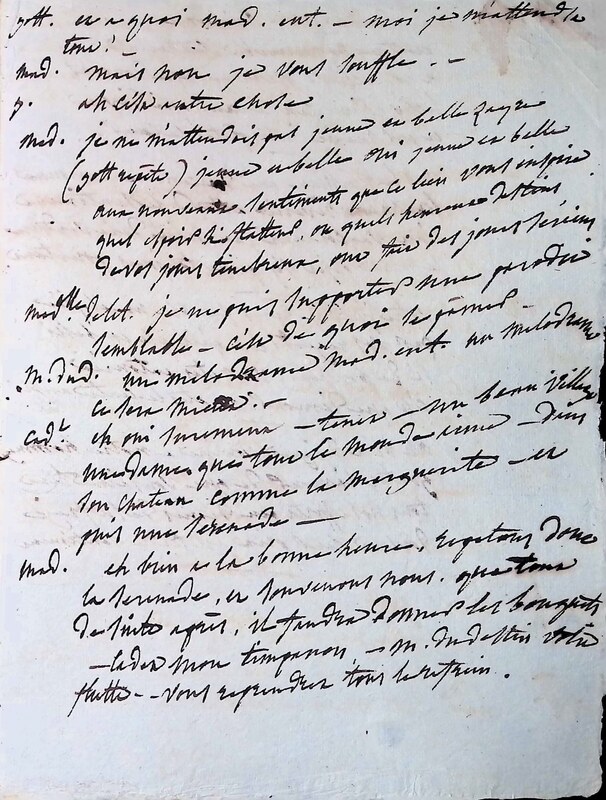 gott. et a quoi mad. ent. – moi je m'attend la
tour!
mad. mais non je vous souffle. –
p. ah c'est autre chose
mad. je ne m'attendois pas jeune et belle zayre
(gott repete) jeune et belle oui jeune et belle
aux nouveaux sentiments que ce lieu vous inspire
quel espoir flatteur, ou quels heureux destins
de vos jours tenebreux, ont fait des jours sereins
mad.lle delit. je ne puis supporter une parodie
semblable – c'est de quoi se pamer –
m. dud. un melodrame mad. ent. un melodrame
ce sera mieux. –
cad.t eh oui surement – tenez – un beau village
une dame que tout le monde aime – dans
son chateau comme la marguerite – et
puis une serenade –
mad. eh bien a la bonne heure, repetons donc
la serenade, et souvenons nous. que tout
de suite après, il faudra donner les bouquets
– cadet mon timpanon – m. du destin votre
flutte – – vous reprendrez tous le refrein.